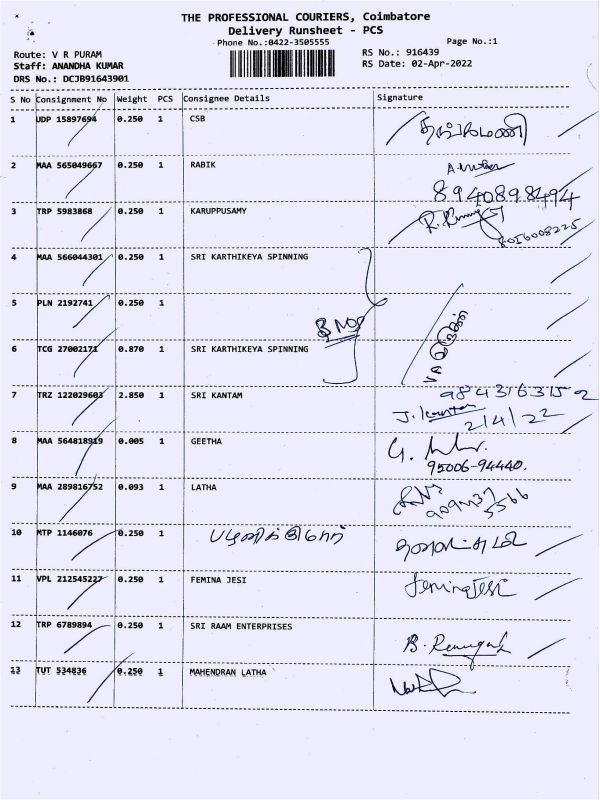 THE PROFESSIONAL COURIERS, Coimbatore
Delivery Runsheet - PCS
Phone No.:0422-3505555
Page No.:1
Route: V R PURAM
RS No.: 916439
Staff: ANANDHA KUMAR
RS Date: 02-Apr-2022
DRS No.: DCJB91643901
S No Consignment No Weight PCS Consignee Details Signature
1 UDP 15897694 0.250 1 CSB
2 MAA 565049667 0.250 1 RABIK
8940898494
3 TRP 5983868 0.250 1 KARUPPUSAMY
8056008225
4 MAA 566044301 0.250 1 SRI KARTHIKEYA SPINNING
5 PLN 2192741 0.250 1
6 TCG 27002171 0.870 1 SRI KARTHIKEYA SPINNING
7 TRZ 122029603 2.850 1 SRI KANTAM
9843163152
2/4/22
8 MAA 564818919 0.005 1 GEETHA
95006-94440.
9 MAA 289816752 0.093 1 LATHA
10 MTP 1146076 0.250 1
11 VPL 212545227 0.250 1 FEMINA JESI FeminaJesi
12 TRP 6789894 0.250 1 SRI RAAM ENTERPRISES
13 TUT 534836 0.250 1 MAHENDRAN LATHA